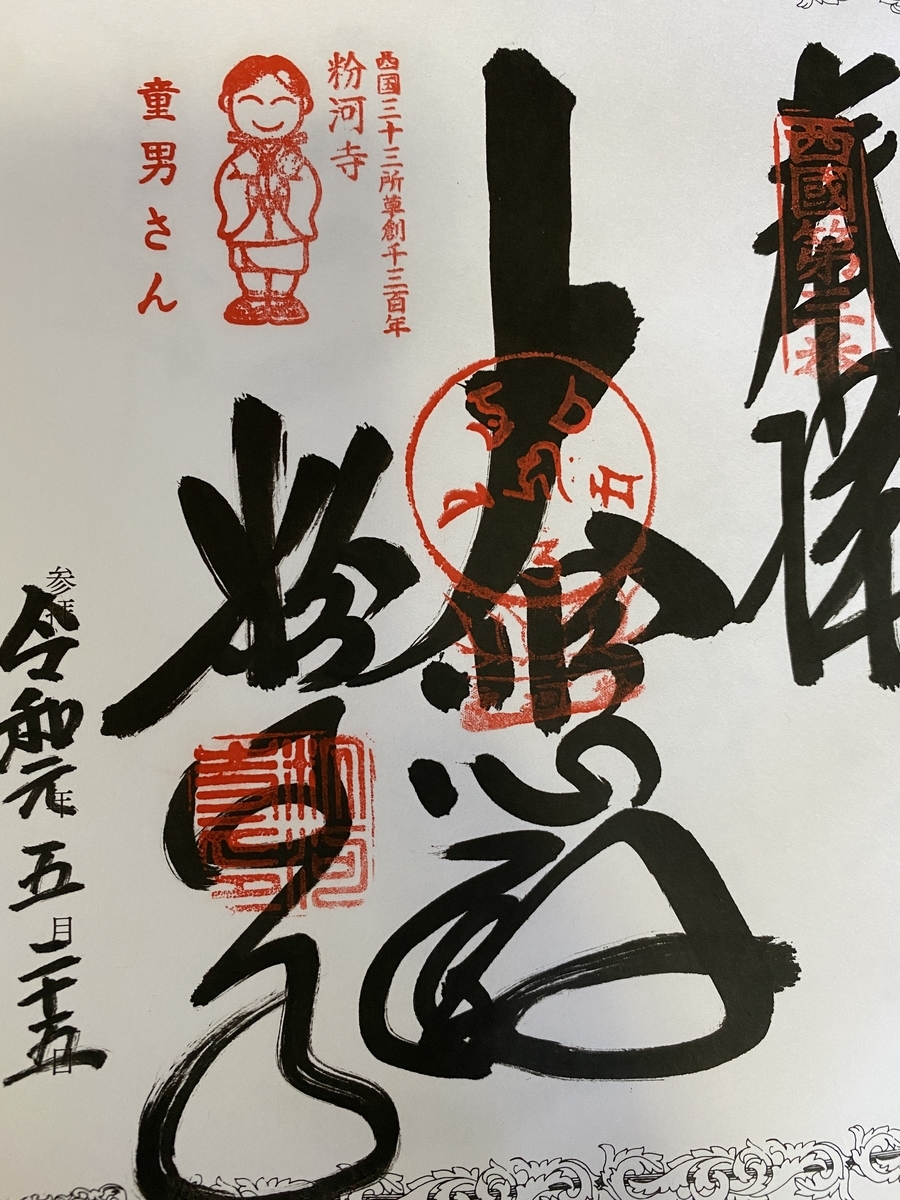 奉拝
西國第三番
大悲殿
西国三十三所草創千三百年
粉河寺
童男さん
粉河寺
参拝 令和元年五月二十五日